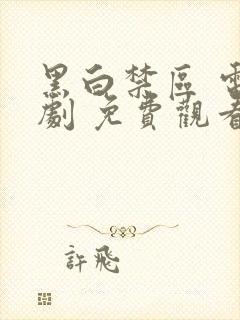 黑白禁區 電
劇 免費觀看
許飛